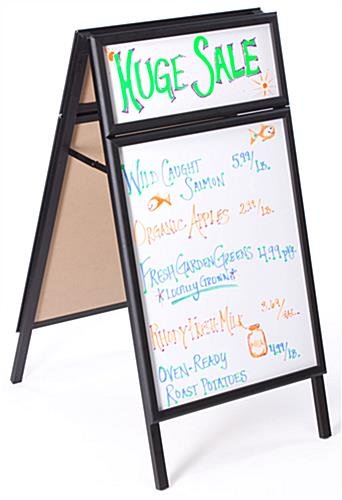 HUGE SALE
WILD CAUGHT 5.99/LB.
SALMON
ORGANIC APPLES 2.99/LB.
FRESH GARDEN GREENS 4.99 pkg.
*LOCALLY GROWN*
3.69/GAL.
FRESH MILK
MILK
OVEN-READY 4.99/LB.
ROAST POTATOES